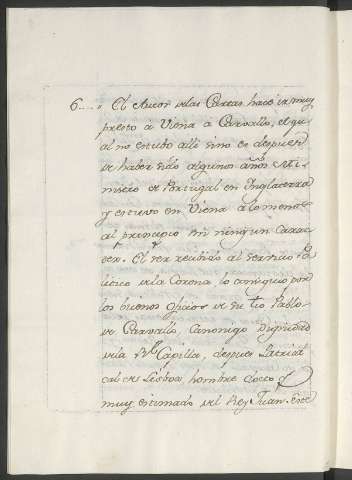 6.... „ El Autor de las Cartas hace ir muy
presto a Viena à Carvallo, el qu-
al no estubo alli sino es despues
de haber sido algunos años Mi-
nistro de Portugal en Inglaterra
y estuvo en Viena a lo menos
al principio sin ningun Carac-
ter. El ser recibido al servicio Po-
litico de la Corona lo consiguio por
los buenos oficios de su tio Pablo
de Carvallo, Canonigo Dignidad
de la Rl. Capilla, despues Patriar-
cal de Lisboa, hombre docto y
muy estimado del Rey Juan. Este